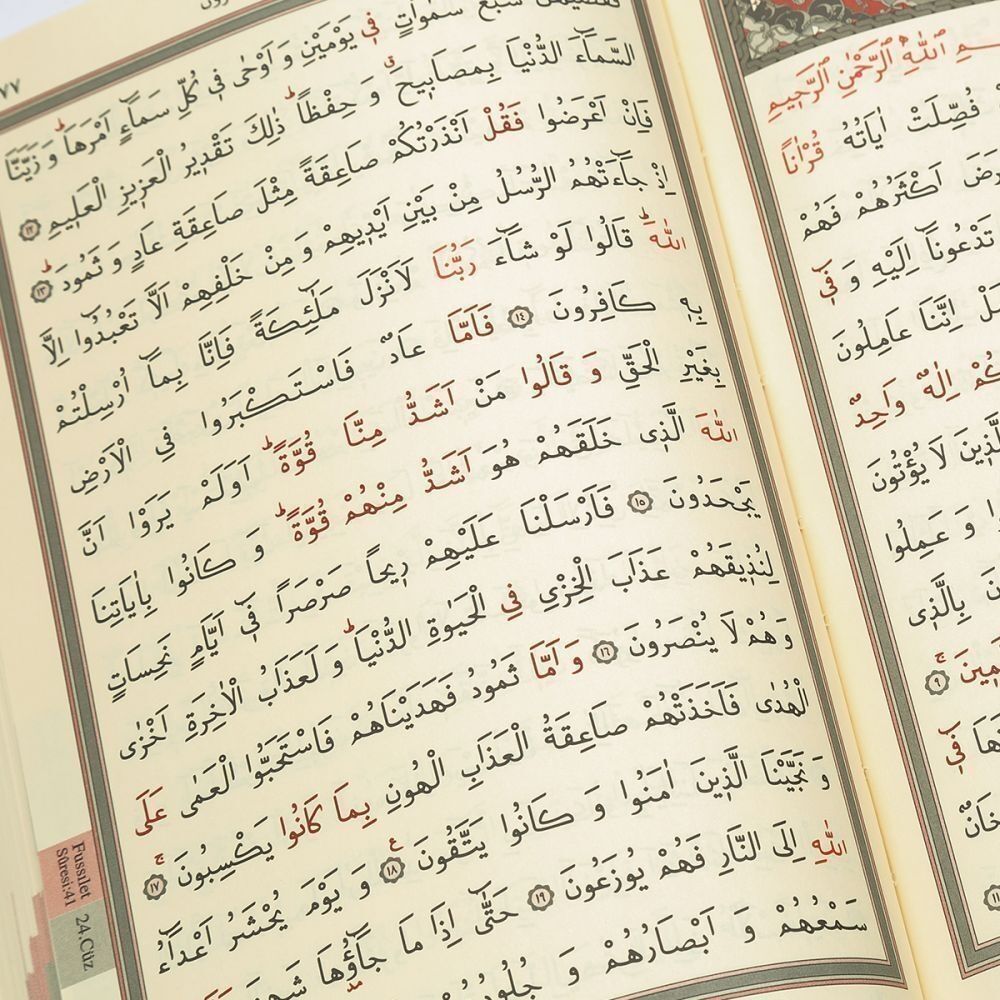 بِسْمِ اللّٰهِ الرَّحْمٰنِ الرَّحٖيمِ
فُصِّلَتْ اٰيَاتُهُ قُرْاٰنًا
اَكْثَرُهُمْ فَهُمْ
تَدْعُونَٓا اِلَيْهِ وَفٖٓي
اِنَّنَا عَامِلُونَ
اِلٰهٌ وَاحِدٌ
لَا يُؤْتُونَ
وَعَمِلُوا
بِالَّذٖي
٩
فٖي
١١
٧٧
سَبْعَ سَمٰوَاتٍ فٖي يَوْمَيْنِ وَاَوْحٰى فٖي كُلِّ سَمَٓاءٍ اَمْرَهَاؕ وَزَيَّنَّا
السَّمَٓاءَ الدُّنْيَا بِمَصَابٖيحَۗ وَحِفْظًاؕ ذٰلِكَ تَقْدٖيرُ الْعَزٖيزِ الْعَلٖيمِ ١٢
فَاِنْ اَعْرَضُوا فَقُلْ اَنْذَرْتُكُمْ صَاعِقَةً مِثْلَ صَاعِقَةِ عَادٍ وَثَمُودَؕ ١٣
اِذْ جَٓاءَتْهُمُ الرُّسُلُ مِنْ بَيْنِ اَيْدٖيهِمْ وَمِنْ خَلْفِهِمْ اَلَّا تَعْبُدُٓوا اِلَّا
اللّٰهَؕ قَالُوا لَوْ شَٓاءَ رَبُّنَا لَاَنْزَلَ مَلٰٓئِكَةً فَاِنَّا بِمَٓا اُرْسِلْتُمْ
بِهٖ كَافِرُونَ ١٤ فَاَمَّا عَادٌ فَاسْتَكْبَرُوا فِي الْاَرْضِ
بِغَيْرِ الْحَقِّ وَقَالُوا مَنْ اَشَدُّ مِنَّا قُوَّةًؕ اَوَلَمْ يَرَوْا اَنَّ
اللّٰهَ الَّذٖي خَلَقَهُمْ هُوَ اَشَدُّ مِنْهُمْ قُوَّةًؕ وَكَانُوا بِاٰيَاتِنَا
يَجْحَدُونَ ١٥ فَاَرْسَلْنَا عَلَيْهِمْ رٖيحًا صَرْصَرًا فٖٓي اَيَّامٍ نَحِسَاتٍ
لِنُذٖيقَهُمْ عَذَابَ الْخِزْيِ فِي الْحَيٰوةِ الدُّنْيَاؕ وَلَعَذَابُ الْاٰخِرَةِ اَخْزٰى
وَهُمْ لَا يُنْصَرُونَ ١٦ وَاَمَّا ثَمُودُ فَهَدَيْنَاهُمْ فَاسْتَحَبُّوا الْعَمٰى عَلَى
الْهُدٰى فَاَخَذَتْهُمْ صَاعِقَةُ الْعَذَابِ الْهُونِ بِمَا كَانُوا يَكْسِبُونَۚ ١٧
وَنَجَّيْنَا الَّذٖينَ اٰمَنُوا وَكَانُوا يَتَّقُونَ ١٨ وَيَوْمَ يُحْشَرُ اَعْدَٓاءُ
اللّٰهِ اِلَى النَّارِ فَهُمْ يُوزَعُونَ ١٩ حَتّٰٓى اِذَا مَا جَٓاؤُ۫هَا
سَمْعُهُمْ وَاَبْصَارُهُمْ
Fussılet
Sûresi:41
24.Cüz